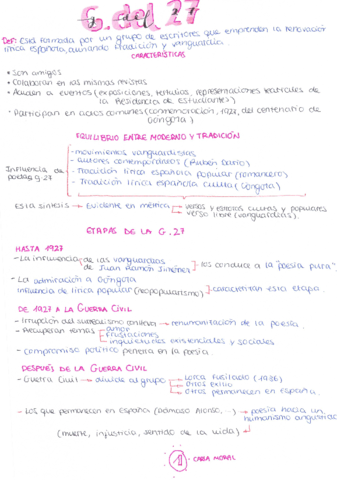 G. del 27
Def: Está formada por un grupo de escritores que emprenden la renovación
lírica española, aunando tradición y vanguardia.
CARACTERÍSTICAS
• Son amigos
• Colaboran en las mismas revistas
• Acuden a eventos (exposiciones, tertulias, representaciones teatrales de
la Residencia de Estudiantes)
• Participan en actos comunes (conmemoración, 1927, del centenario de
Góngora)
EQUILIBRIO ENTRE MODERNO Y TRADICIÓN
Influencia de
poetas g.27
- movimientos vanguardistas
- autores contemporáneos (Rubén Darío)
- Tradición lírica española popular (romancero)
- Tradición lírica española culta (Góngora)
Esta síntesis → Evidente en métrica → versos y estrofas cultas y populares
verso libre (vanguardias).
ETAPAS DE LA G.27
HASTA 1927
- La influencia de las vanguardias
de Juan Ramón Jiménez
los conduce a la "poesía pura".
- La admiración a Góngora
influencia de lírica popular (neopopularismo)
caracterizan esta etapa.
DE 1927 A LA GUERRA CIVIL
- Irrupción del surrealismo conlleva → rehumanización de la poesía.
- Recuperan temas → amor
→ frustraciones
→ inquietudes existenciales y sociales
- Compromiso político penetra en la poesía.
DESPUÉS DE LA GUERRA CIVIL
- Guerra Civil → divide al grupo → Lorca fusilado (1936)
→ otros exilio
→ otros permanecen en España.
- Los que permanecen en España (Dámaso Alonso, ...) → poesía hacia un
humanismo angustiado
(muerte, injusticia, sentido de la vida)
1
- CARLA MORAL